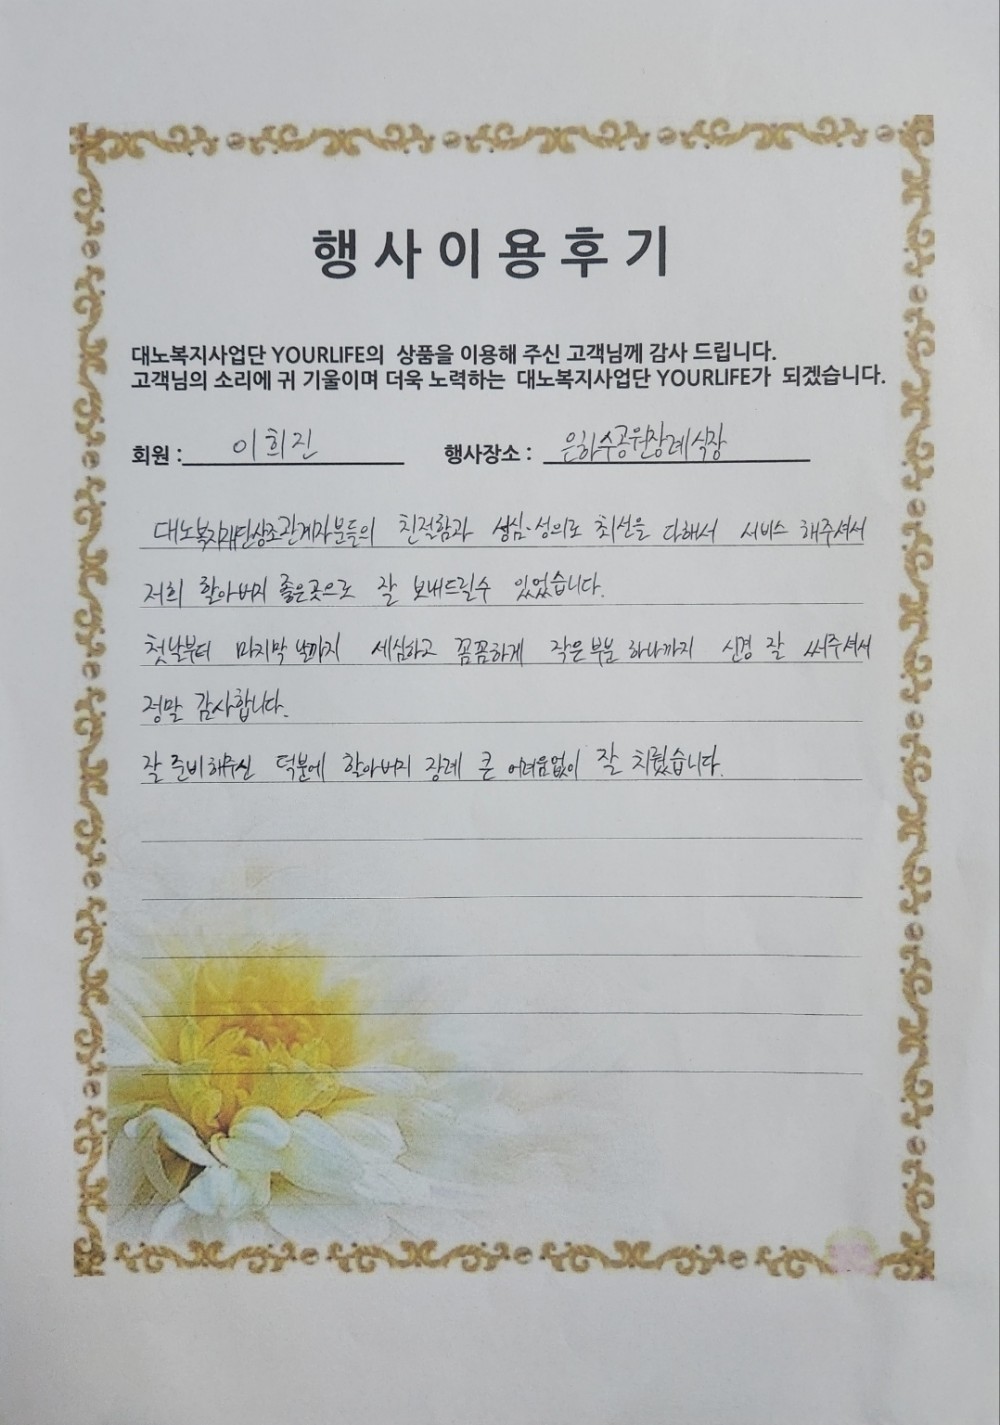 행사이용후기
대노복지사업단 YOURLIFE의 상품을 이용해 주신 고객님께 감사 드립니다.
고객님의 소리에 귀 기울이며 더욱 노력하는 대노복지사업단 YOURLIFE가 되겠습니다.
회원 : 이희진 행사장소 : 은하수공원장례식장
대노복지재단상조관계자분들의 친절함과 성심·성의로 최선을 다해서 서비스 해주셔서
저희 할아버지 좋은곳으로 잘 보내드릴수 있었습니다.
첫날부터 마지막 날까지 세심하고 꼼꼼하게 작은부분 하나까지 신경 잘 써주셔서
정말 감사합니다.
잘 준비해주신 덕분에 할아버지 장례 큰 어려움없이 잘 치뤘습니다.